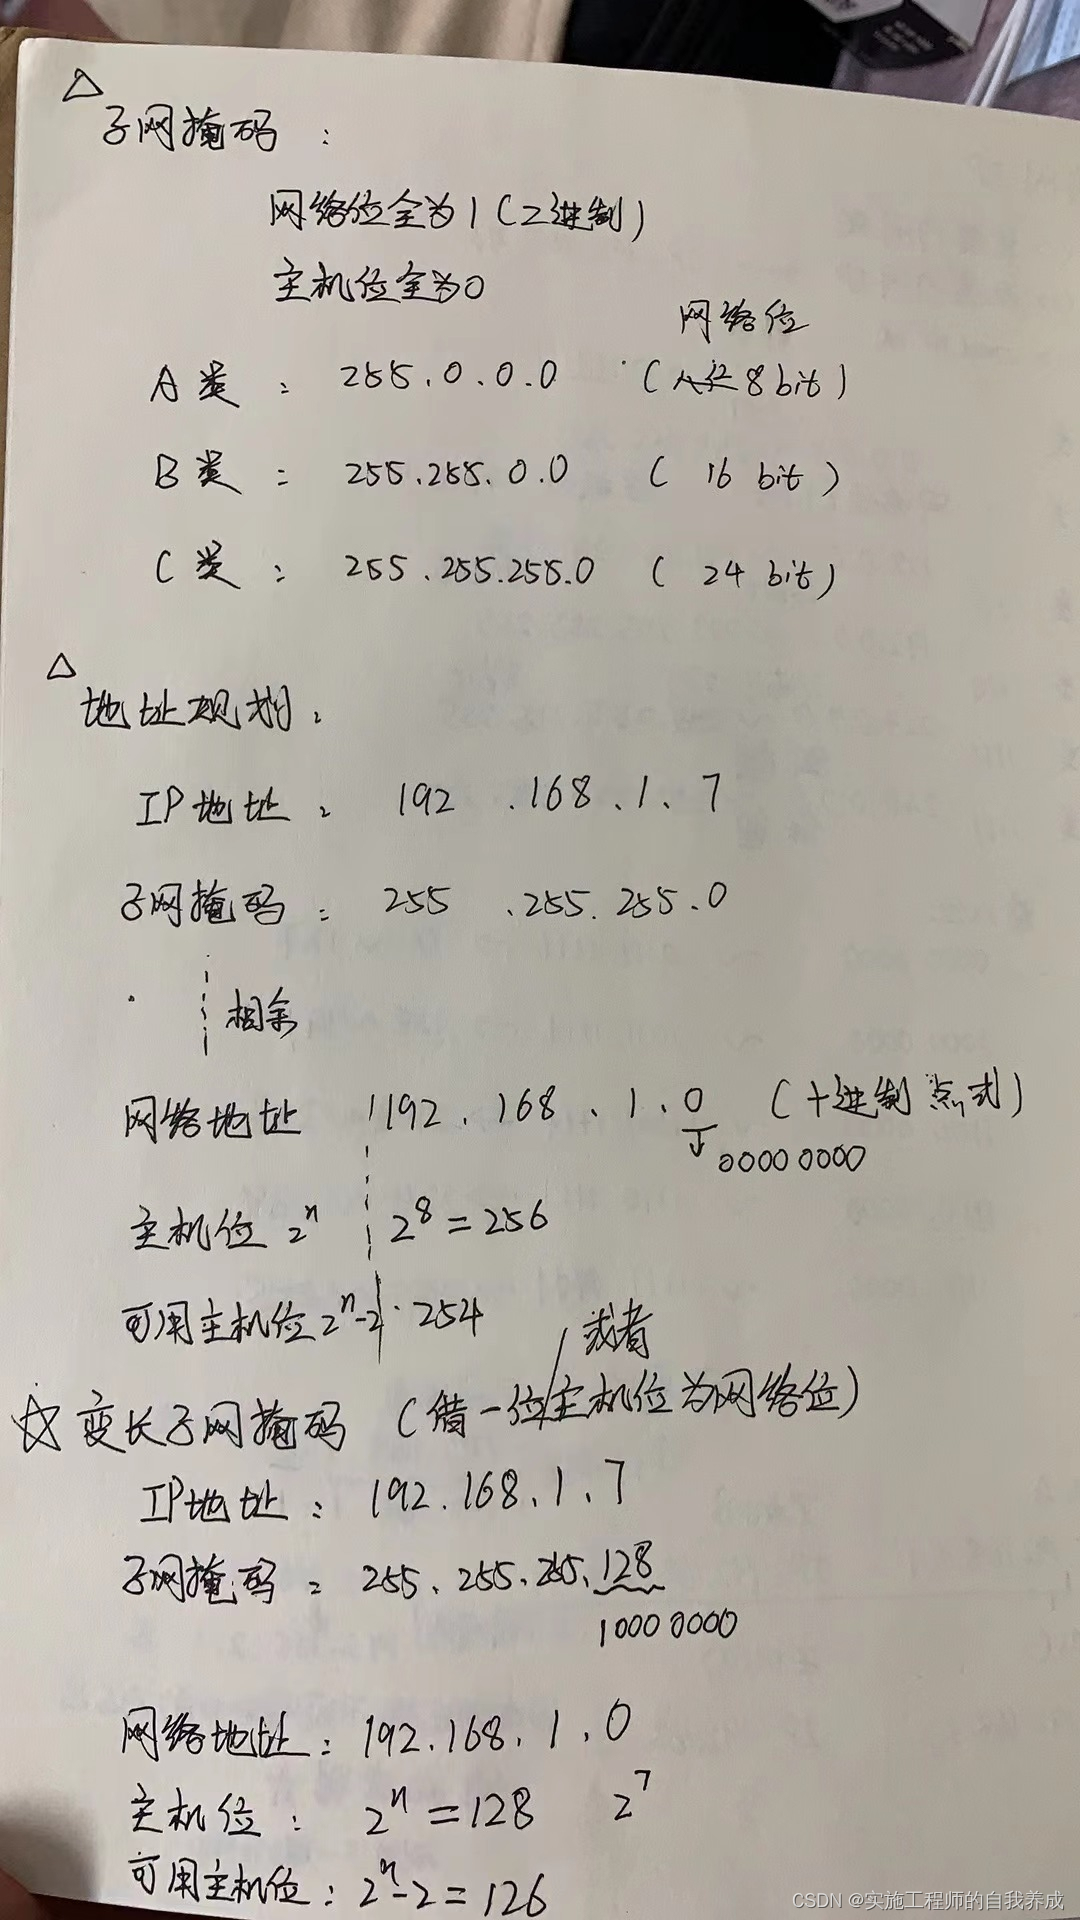 △
子网掩码：
网络位全为1（2进制）
主机位全为0
网络位
A类：255.0.0.0（8bit）
B类：255.255.0.0（16 bit）
C类：255.255.255.0（24 bit）
△
地址规划：
IP地址：192.168.1.7
子网掩码：255.255.255.0
相余
网络地址 192.168.1.0（十进制点式）
↓00000000
主机位 2ⁿ 2⁸=256
可用主机位2ⁿ-2 254
或者
☆变长子网掩码（借一位/主机位为网络位）
IP地址：192.168.1.7
子网掩码：255.255.255.128
10000000
网络地址：192.168.1.0
主机位：2ⁿ=128 2⁷
可用主机位：2ⁿ-2=126
CSDN @实施工程师的自我养成